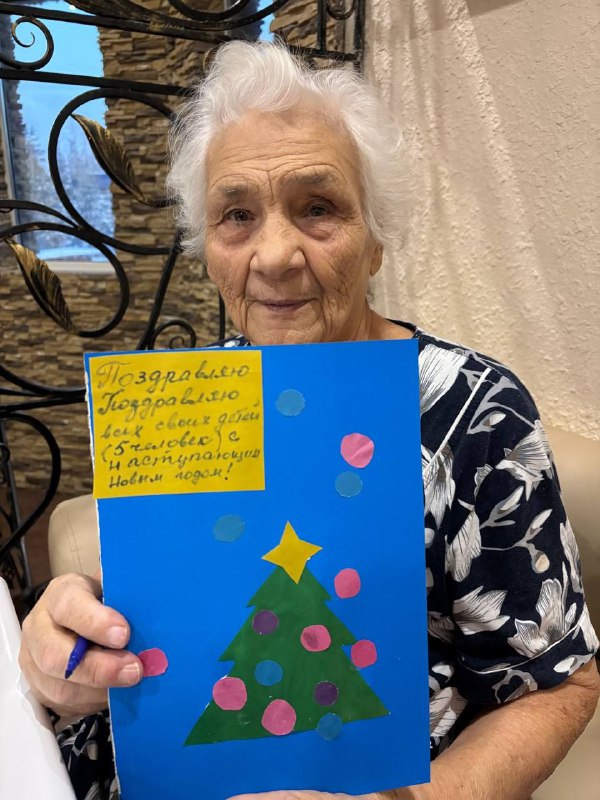 Поздравляю
Поздравляю
всех своих детей
(5 человек) с
наступающим
Новым годом!